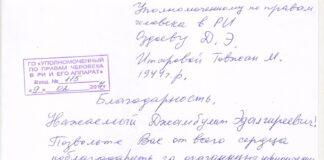 Уполномоченному по правам
человека в РИ
Оздоеву Д. Э.
Итаровой Товжан М.
1949 г.р.
ГО «УПОЛНОМОЧЕННЫЙ
ПО ПРАВАМ ЧЕЛОВЕКА
В РИ И ЕГО АППАРАТ»
Вход. № 115
Благодарность,
Уважаемый Джамбулат Эдалгириевич!
Позвольте Вас от всего сердца
поблагодарить за